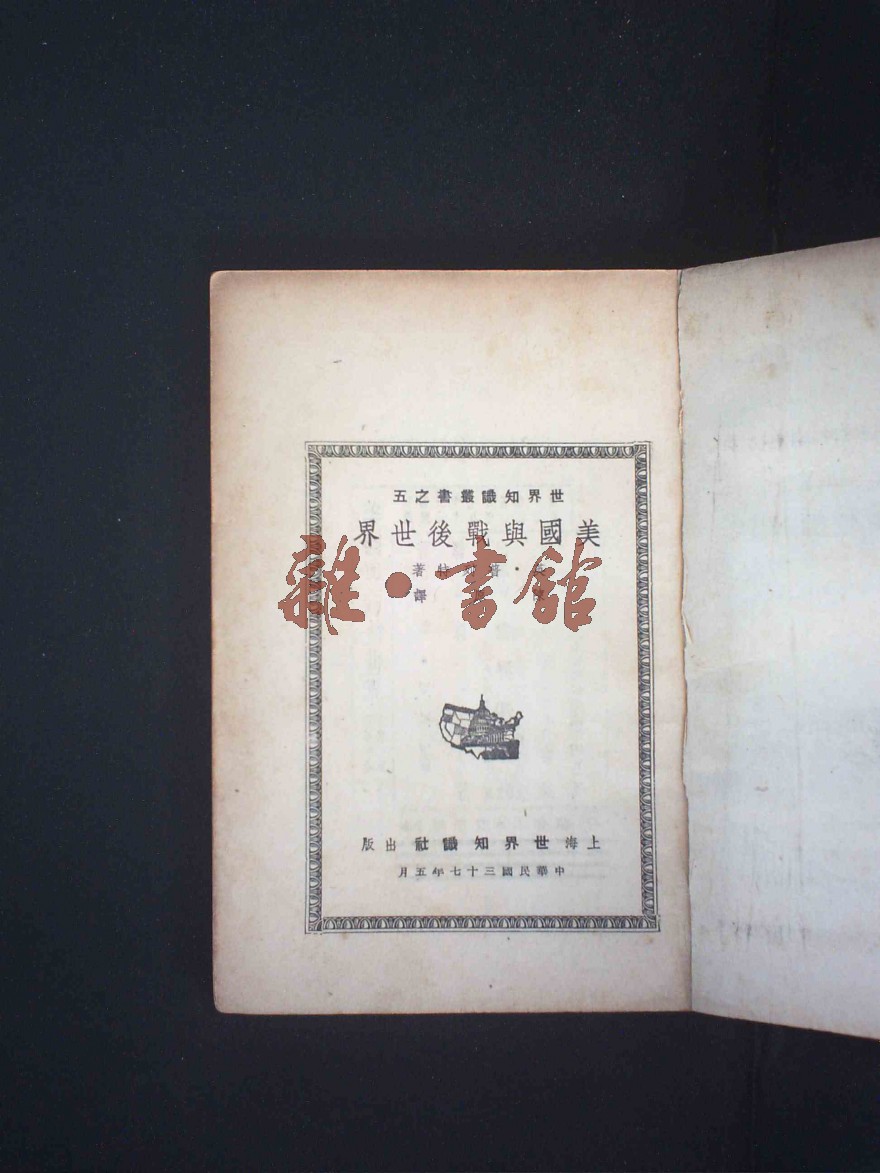 世界知識叢書之五
美國與戰後世界
著
譯
雜·書館
上海世界知識社出版
中華民國三十七年五月